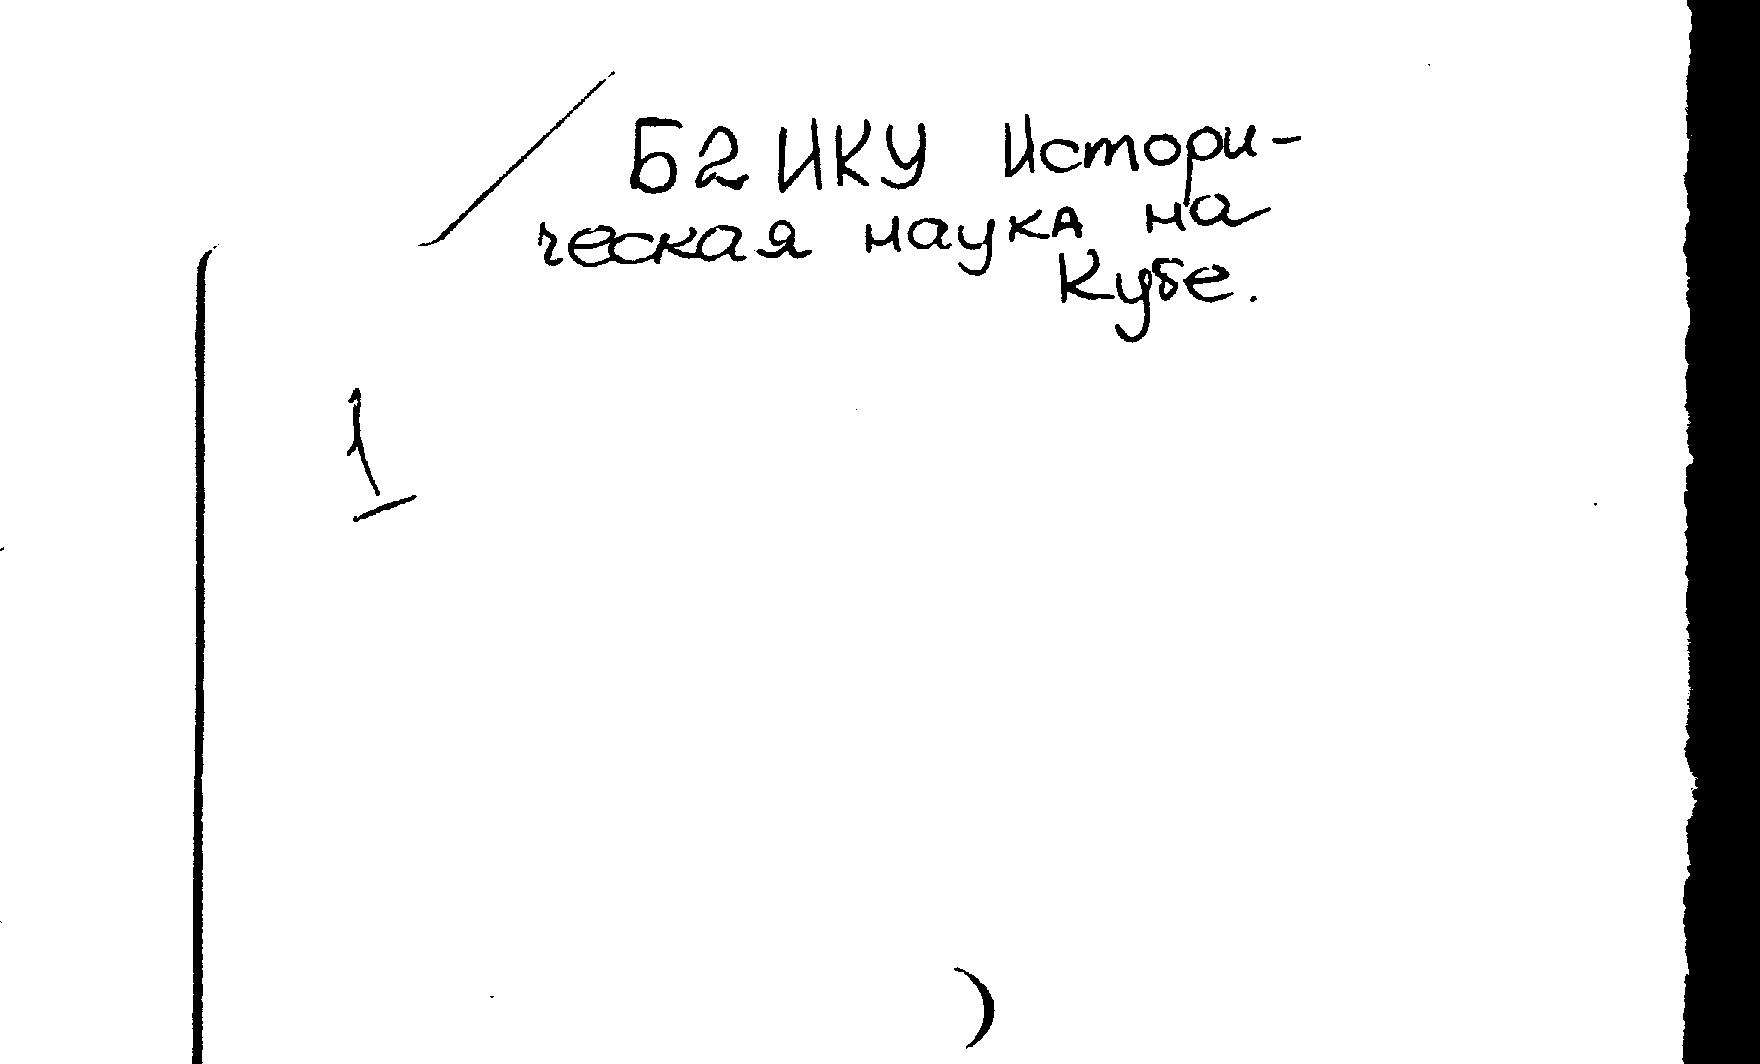 Б2 ИКУ Истори-
ческая наука на
Кубе.
1